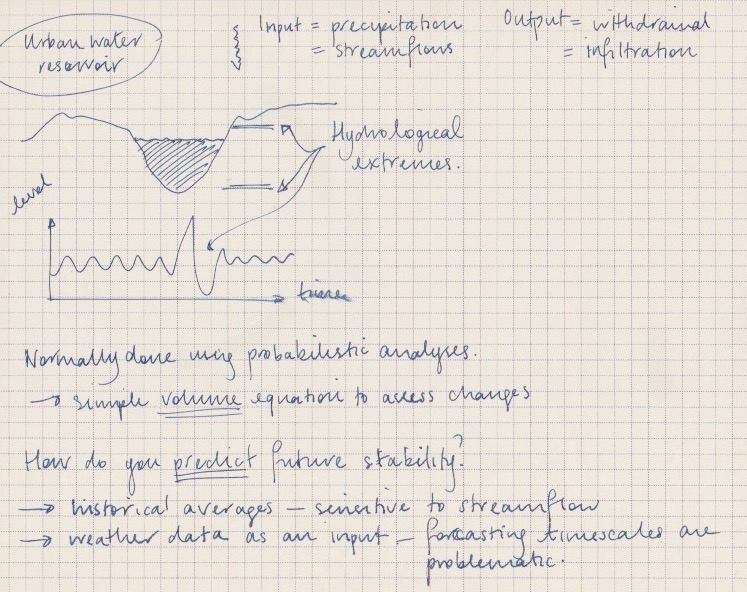 Urban water
reservoir
Input = precipitation
= streamflows
Output = withdrawal
= infiltration
Hydrological
extremes.
level
time
Normally done using probabilistic analyses.
→ simple volume equation to assess changes
How do you predict future stability?
→ historical averages – sensitive to streamflow
→ weather data as an input – forecasting timescales are
problematic.